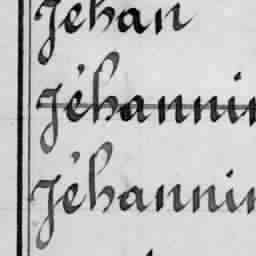 Jéhan
Jéhannin
Jéhannin